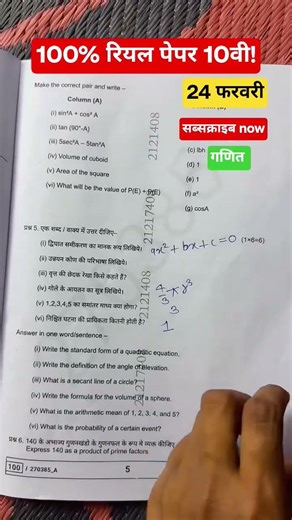 100% रियल पेपर 10वी!
24 फरवरी
सब्सक्राइब now
गणित
Make the correct pair and write –
Column (A)
(i) sin²A + cos² A
(ii) tan (90°-A)
(iii) 5sec²A – 5tan²A
(iv) Volume of cuboid
(v) Area of the square
(vi) What will be the value of P(E) +
(c) lbh
(d) 1
(e) 1
(f) a²
(g) cosA
2121408
21217408
प्रश्न 5. एक शब्द / वाक्य में उत्तर दीजिए–
(1×6=6)
(i) द्विघात समीकरण का मानक रूप लिखिये।
ax² + bx + c = 0
(ii) उन्नयन कोण की परिभाषा लिखिये।
(iii) वृत्त की छेदक रेखा किसे कहते हैं?
(iv) गोले के आयतन का सूत्र लिखिये।
4/3 πr³
(v) 1,2,3,4,5 का समांतर माध्य क्या होगा?
3
(vi) निश्चित घटना की प्रायिकता कितनी होती है?
1
Answer in one word/sentence –
(i) Write the standard form of a quadratic equation.
(ii) Write the definition of the angle of elevation.
(iii) What is a secant line of a circle?
(iv) Write the formula for the volume of a sphere.
(v) What is the arithmetic mean of 1, 2, 3, 4, and 5?
(vi) What is the probability of a certain event?
प्रश्न 6. 140 के अभाज्य गुणनखंडों के गुणनफल के रूप में व्यक्त कीजिए
Express 140 as a product of prime factors
100 / 270385_A
5